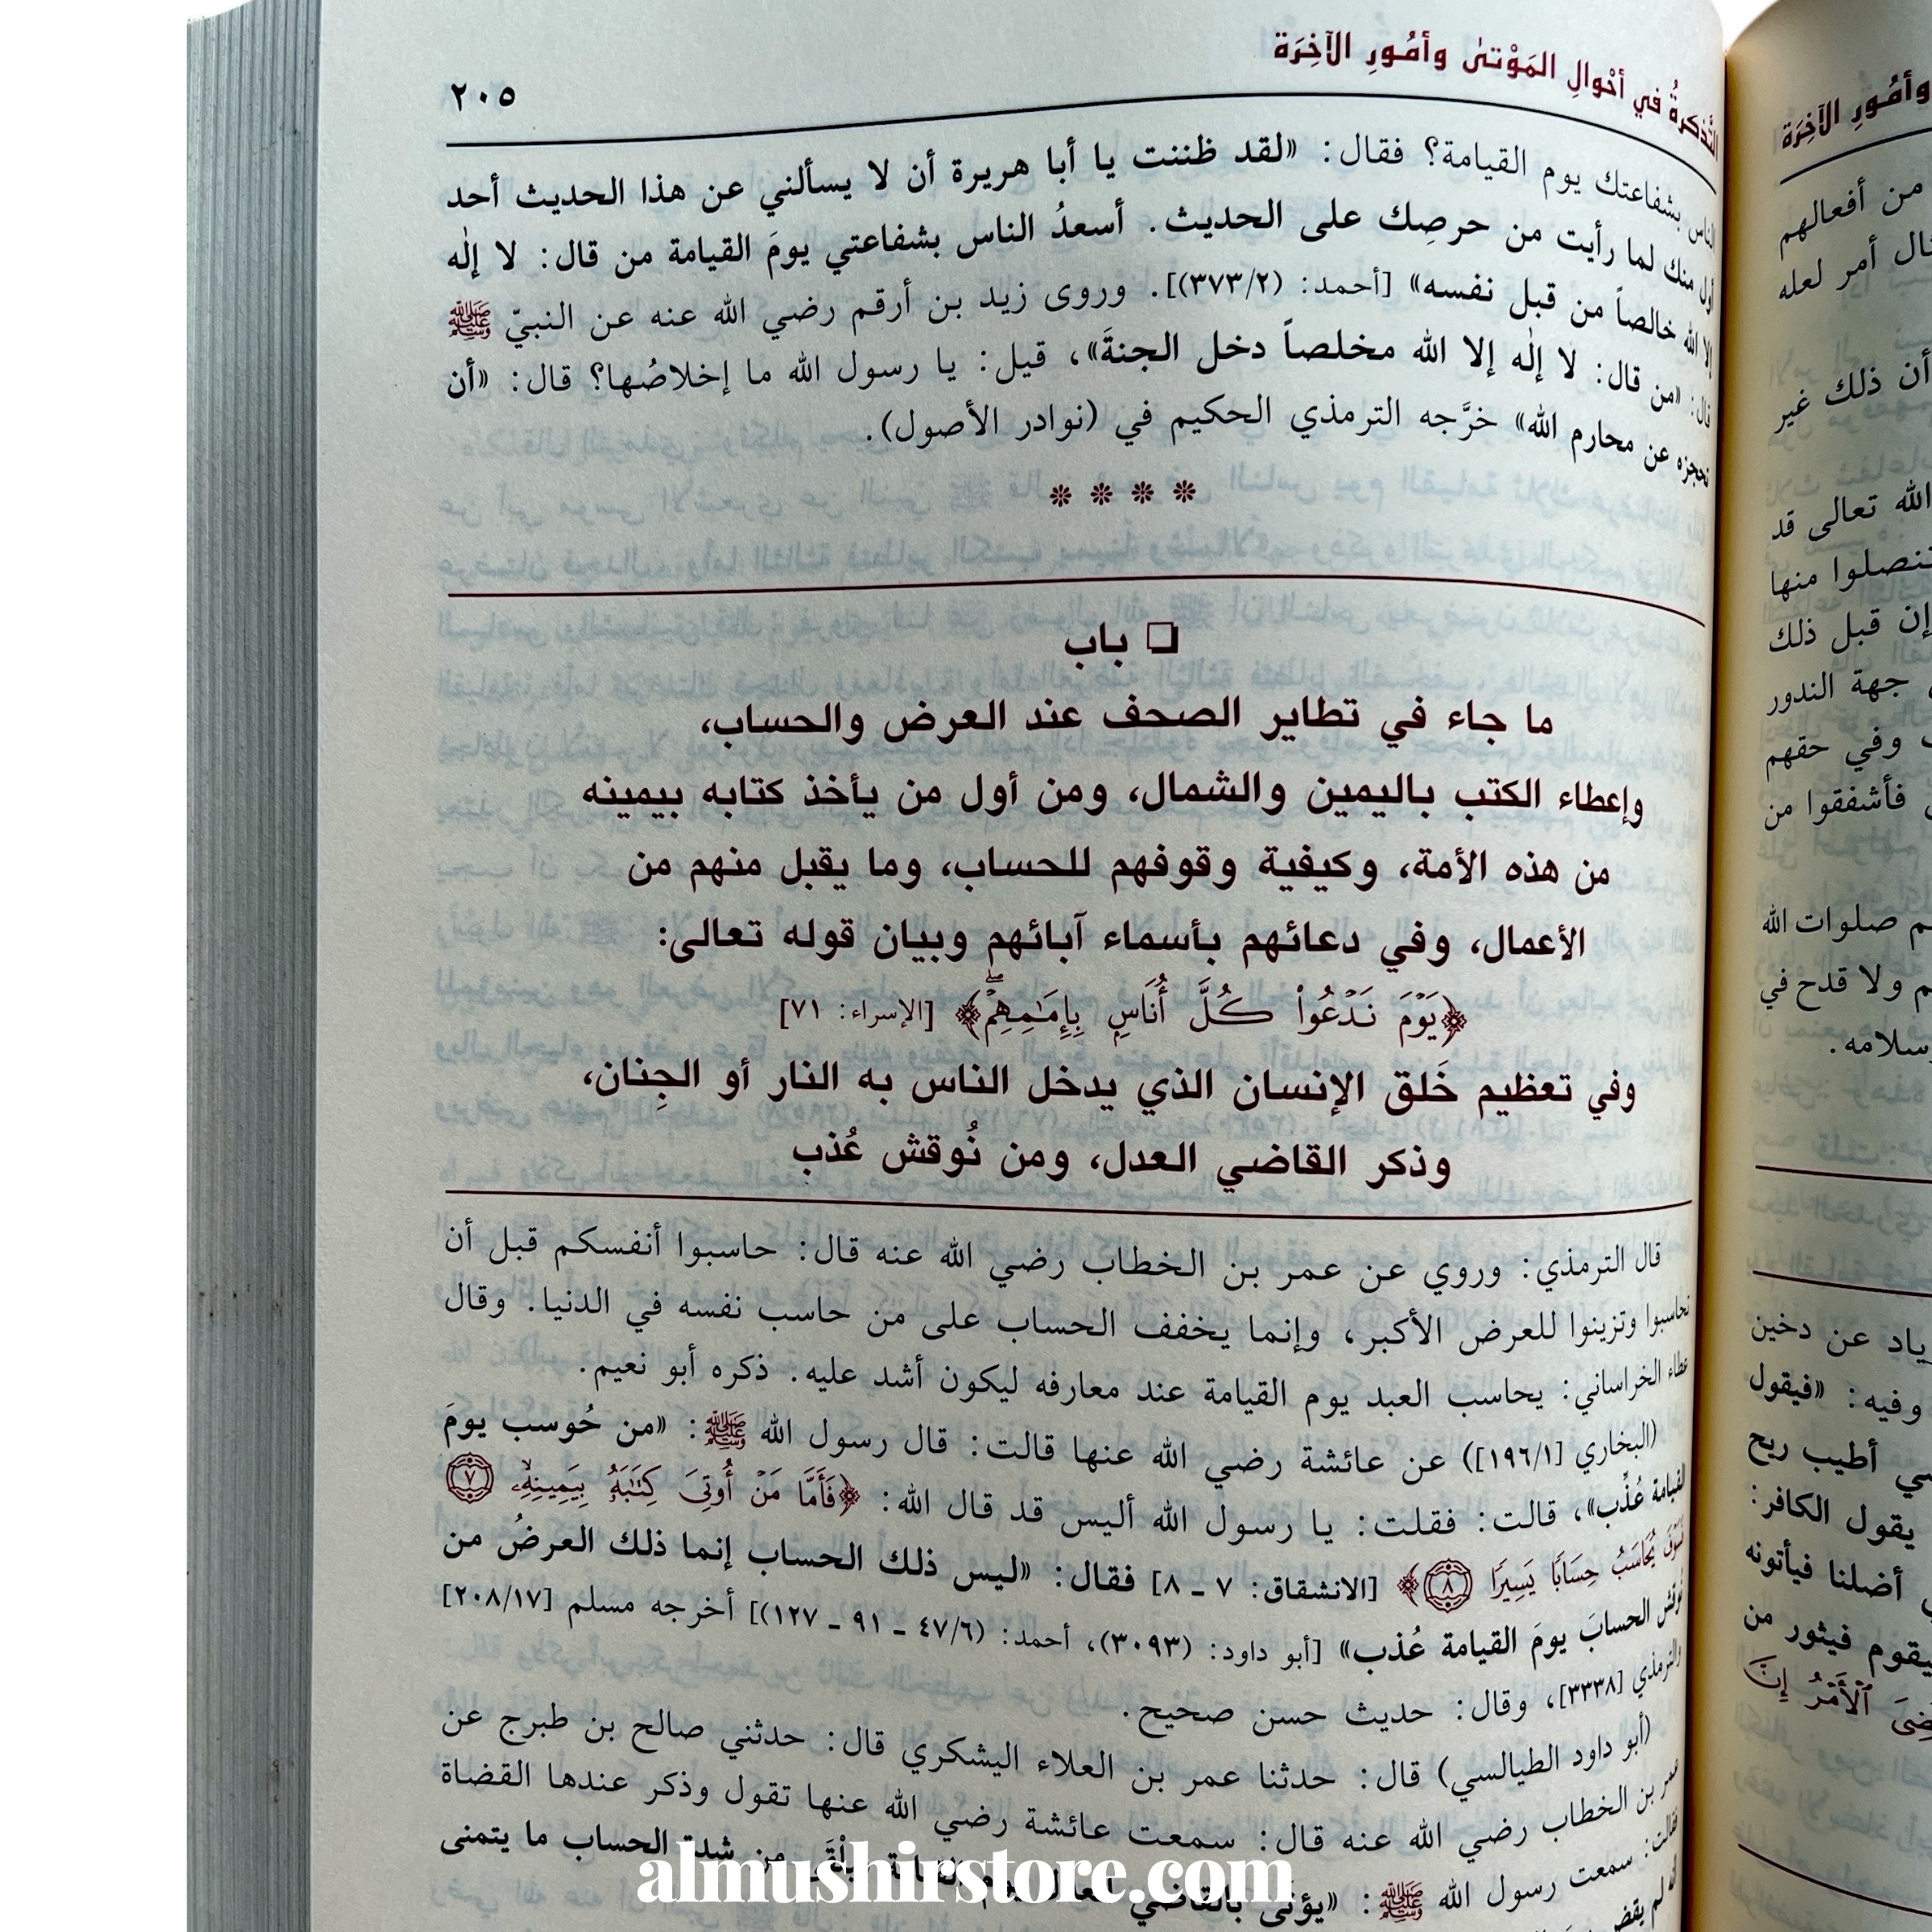 التَّذكرةُ في أحْوالِ المَوْتىٰ وأمُورِ الآخِرَة
٢٠٥
الناس بشفاعتك يوم القيامة؟ فقال: «لقد ظننت يا أبا هريرة أن لا يسألني عن هذا الحديث أحد
أول منك لما رأيت من حرصِك على الحديث. أسعدُ الناس بشفاعتي يومَ القيامة من قال: لا إلٰه
إلا الله خالصاً من قبل نفسه» [أحمد: (٣٧٣/٢)]. وروى زيد بن أرقم رضي الله عنه عن النبيّ ﷺ
قال: «من قال: لا إلٰه إلا الله مخلصاً دخل الجنةَ»، قيل: يا رسول الله ما إخلاصُها؟ قال: «أن
تحجزه عن محارم الله» خرَّجه الترمذي الحكيم في (نوادر الأصول).
❊ ❊ ❊ ❊
❑ باب
ما جاء في تطاير الصحف عند العرض والحساب،
وإعطاء الكتب باليمين والشمال، ومن أول من يأخذ كتابه بيمينه
من هذه الأمة، وكيفية وقوفهم للحساب، وما يقبل منهم من
الأعمال، وفي دعائهم بأسماء آبائهم وبيان قوله تعالى:
﴿يَوْمَ نَدْعُواْ كُلَّ أُنَاسٍۭ بِإِمَٰمِهِمْۖ﴾ [الإسراء: ٧١]
وفي تعظيم خَلق الإنسان الذي يدخل الناس به النار أو الجِنان،
وذكر القاضي العدل، ومن نُوقش عُذب
قال الترمذي: وروي عن عمر بن الخطاب رضي الله عنه قال: حاسبوا أنفسكم قبل أن
تحاسبوا وتزينوا للعرض الأكبر، وإنما يخفف الحساب على من حاسب نفسه في الدنيا. وقال
عطاء الخراساني: يحاسب العبد يوم القيامة عند معارفه ليكون أشد عليه. ذكره أبو نعيم.
(البخاري [١٩٦/١]) عن عائشة رضي الله عنها قالت: قال رسول الله ﷺ: «من حُوسب يومَ
القيامة عُذِّب»، قالت: فقلت: يا رسول الله أليس قد قال الله: ﴿فَأَمَّا مَنْ أُوتِيَ كِتَٰبَهُۥ بِيَمِينِهِۦ ٧
فَسَوْفَ يُحَاسَبُ حِسَابًا يَسِيرًا ٨﴾ [الانشقاق: ٧ ـ ٨] فقال: «ليس ذلك الحساب إنما ذلك العرضُ من
نُوقش الحسابَ يومَ القيامة عُذب» [أبو داود: (٣٠٩٣)، أحمد: (٤٧/٦ ـ ٩١ ـ ١٢٧)] أخرجه مسلم [٢٠٨/١٧]
والترمذي [٣٣٣٨]، وقال: حديث حسن صحيح.
(أبو داود الطيالسي) قال: حدثنا عمر بن العلاء اليشكري قال: حدثني صالح بن طبرج عن
عمر بن الخطاب رضي الله عنه قال: سمعت عائشة رضي الله عنها تقول وذكر عندها القضاة
فقالت: سمعت رسول الله ﷺ: «يؤتى بالقاضي العدل يوم القيامة فيلْقَى من شدة الحساب ما يتمنى
أنه لم يقض
وأمُورِ الآخِرَة
من أفعالهم
أمر لعله
أن ذلك غير
الله تعالى قد
إن قبل ذلك
جهة الندور
وفي حقهم
فأشفقوا من
صلوات الله
ولا قدح في
عن دخين
وفيه: «فيقول
أطيب ريح
يقول الكافر:
أضلنا فيأتونه
فيثور من
ٱلْأَمْرُ إِنَّ
almushirstore.com